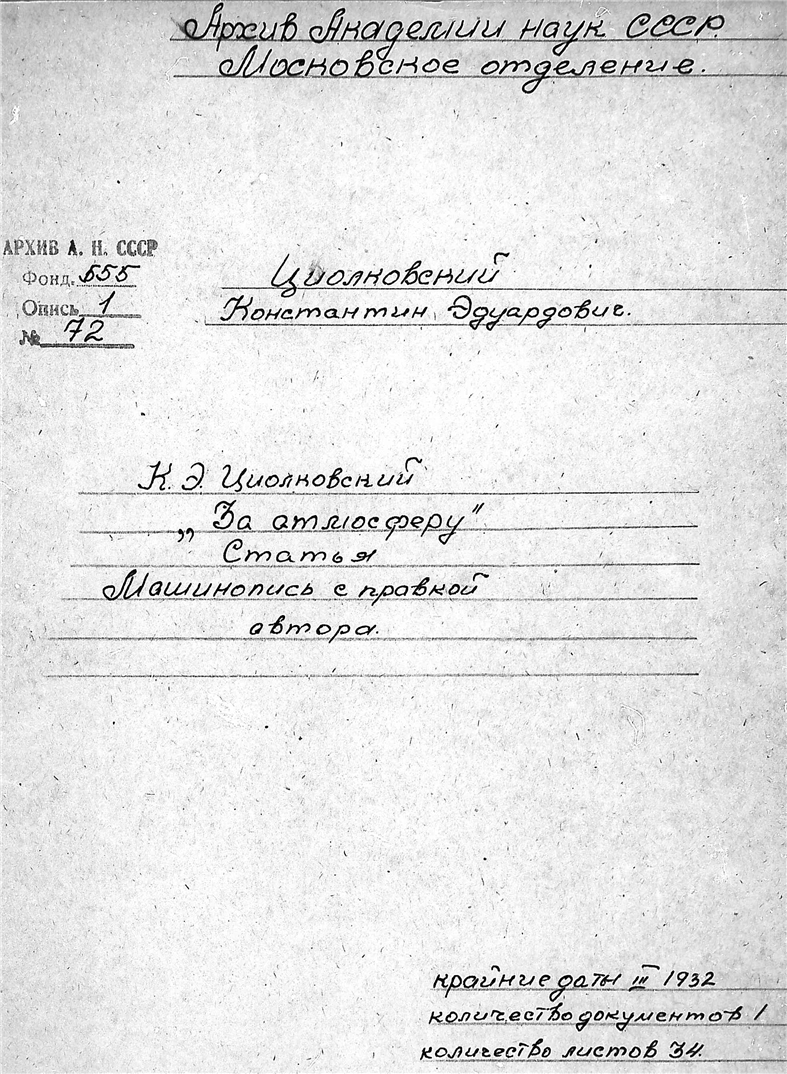 Архив Академии наук СССР.
Московское отделение.
АРХИВ А. Н. СССР
Фонд. 555
Опись 1
№ 72
Циолковский
Константин Эдуардович.
К. Э. Циолковский
„За атмосферу"
Статья
Машинопись с правкой
автора.
крайние даты III 1932
количество документов 1
количество листов 34.